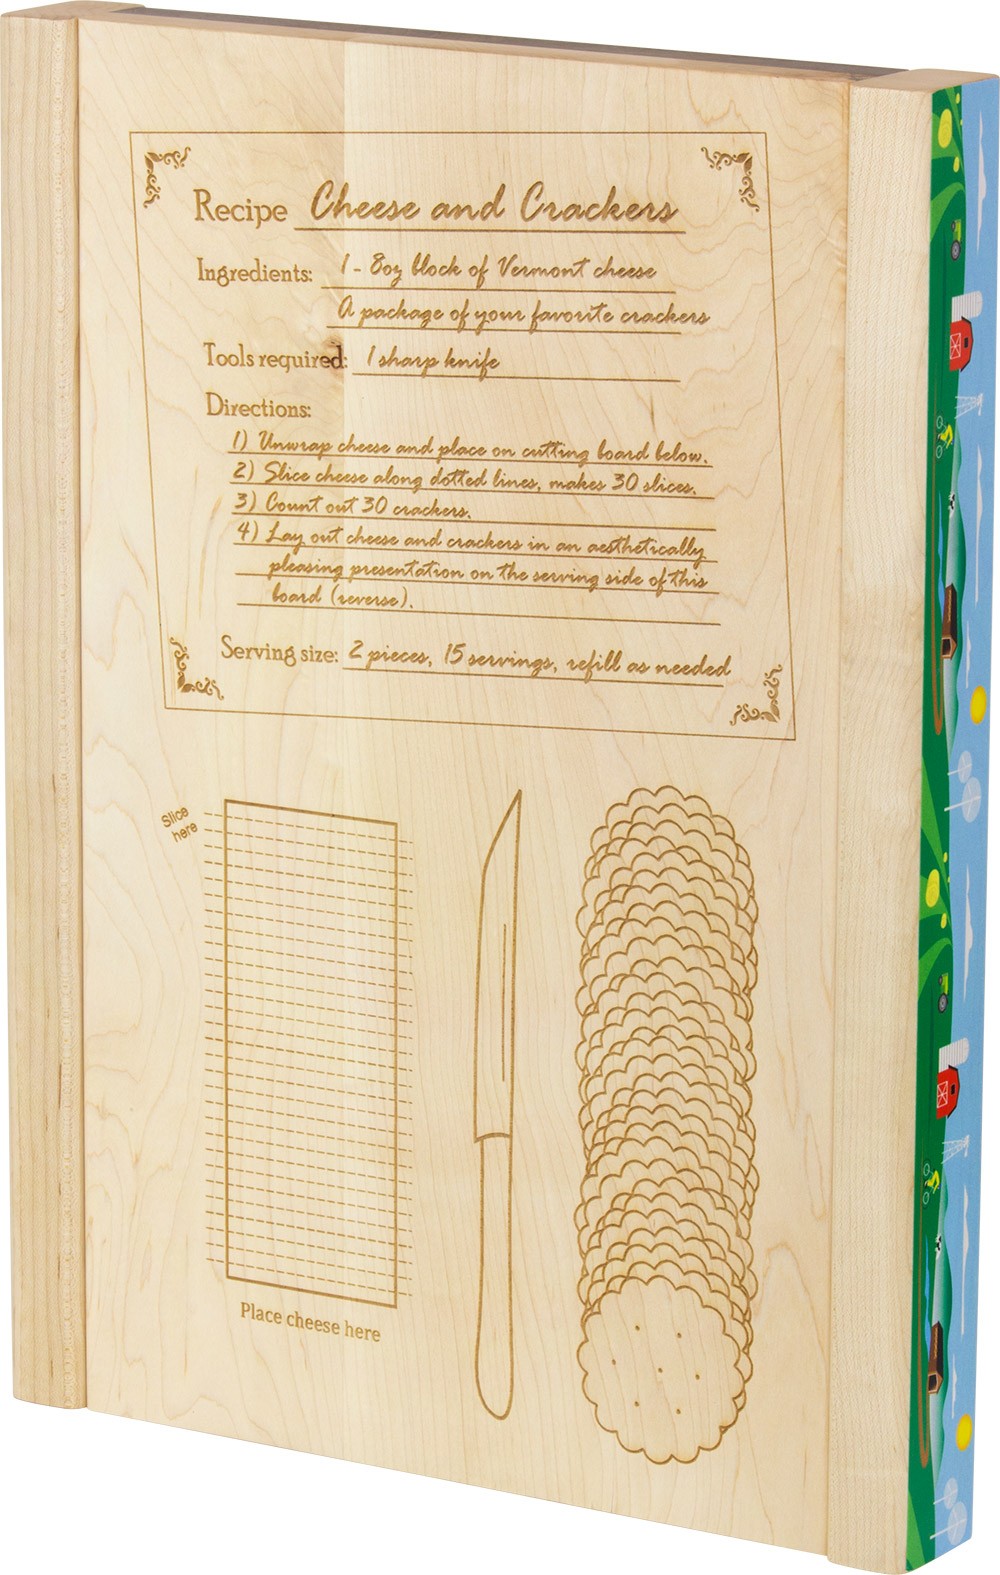 Recipe Cheese and Crackers
Ingredients: 1 - 8oz block of Vermont cheese
A package of your favorite crackers
Tools required: 1 sharp knife
Directions:
1) Unwrap cheese and place on cutting board below.
2) Slice cheese along dotted lines, makes 30 slices.
3) Count out 30 crackers.
4) Lay out cheese and crackers in an aesthetically
pleasing presentation on the serving side of this
board (reverse).
Serving size: 2 pieces, 15 servings, refill as needed
Slice
here
Place cheese here